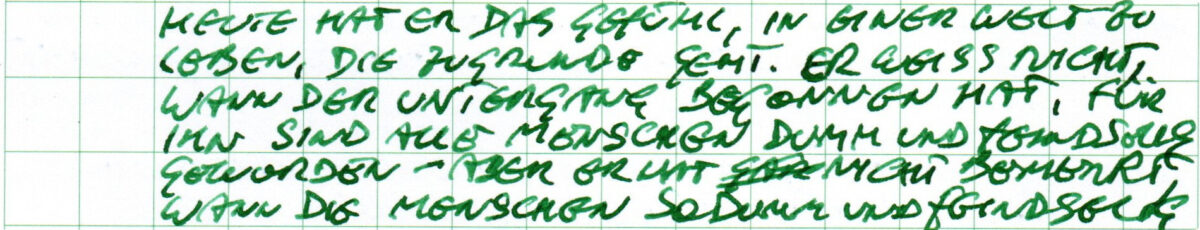 HEUTE HAT ER DAS GEFÜHL, IN EINER WELT ZU
LEBEN, DIE ZUGRUNDE GEHT. ER WEISS NICHT,
WANN DER UNTERGANG BEGONNEN HAT, FÜR
IHN SIND ALLE MENSCHEN DUMM UND FEINDSELIG
GEWORDEN – ABER ER HAT GAR NICHT BEMERKT,
WANN DIE MENSCHEN SO DUMM UND FEINDSELIG